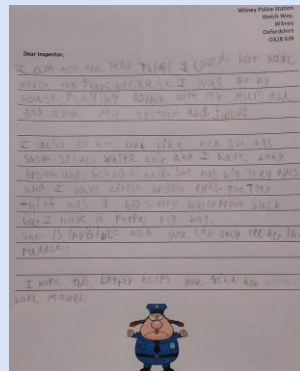 Witney Police Station
Welch Way,
Witney
Oxfordshire
OX28 6JN
Dear Inspector,
I am not the Tear Thief! I could not have
the tears because I was at my
house Playing with my mum and
dad and my brother and
I also do not look like her. She has
short spikey white hair and I have long
brown and hair. She has big grey eyes
and I have brown eyes. The Tear
Thief has a big silvery waterproof sack
but I have a Peppa Pig bag.
She is invisible and you can only see her in
puddles.
I hope this letter helps you find her
Love Mabel